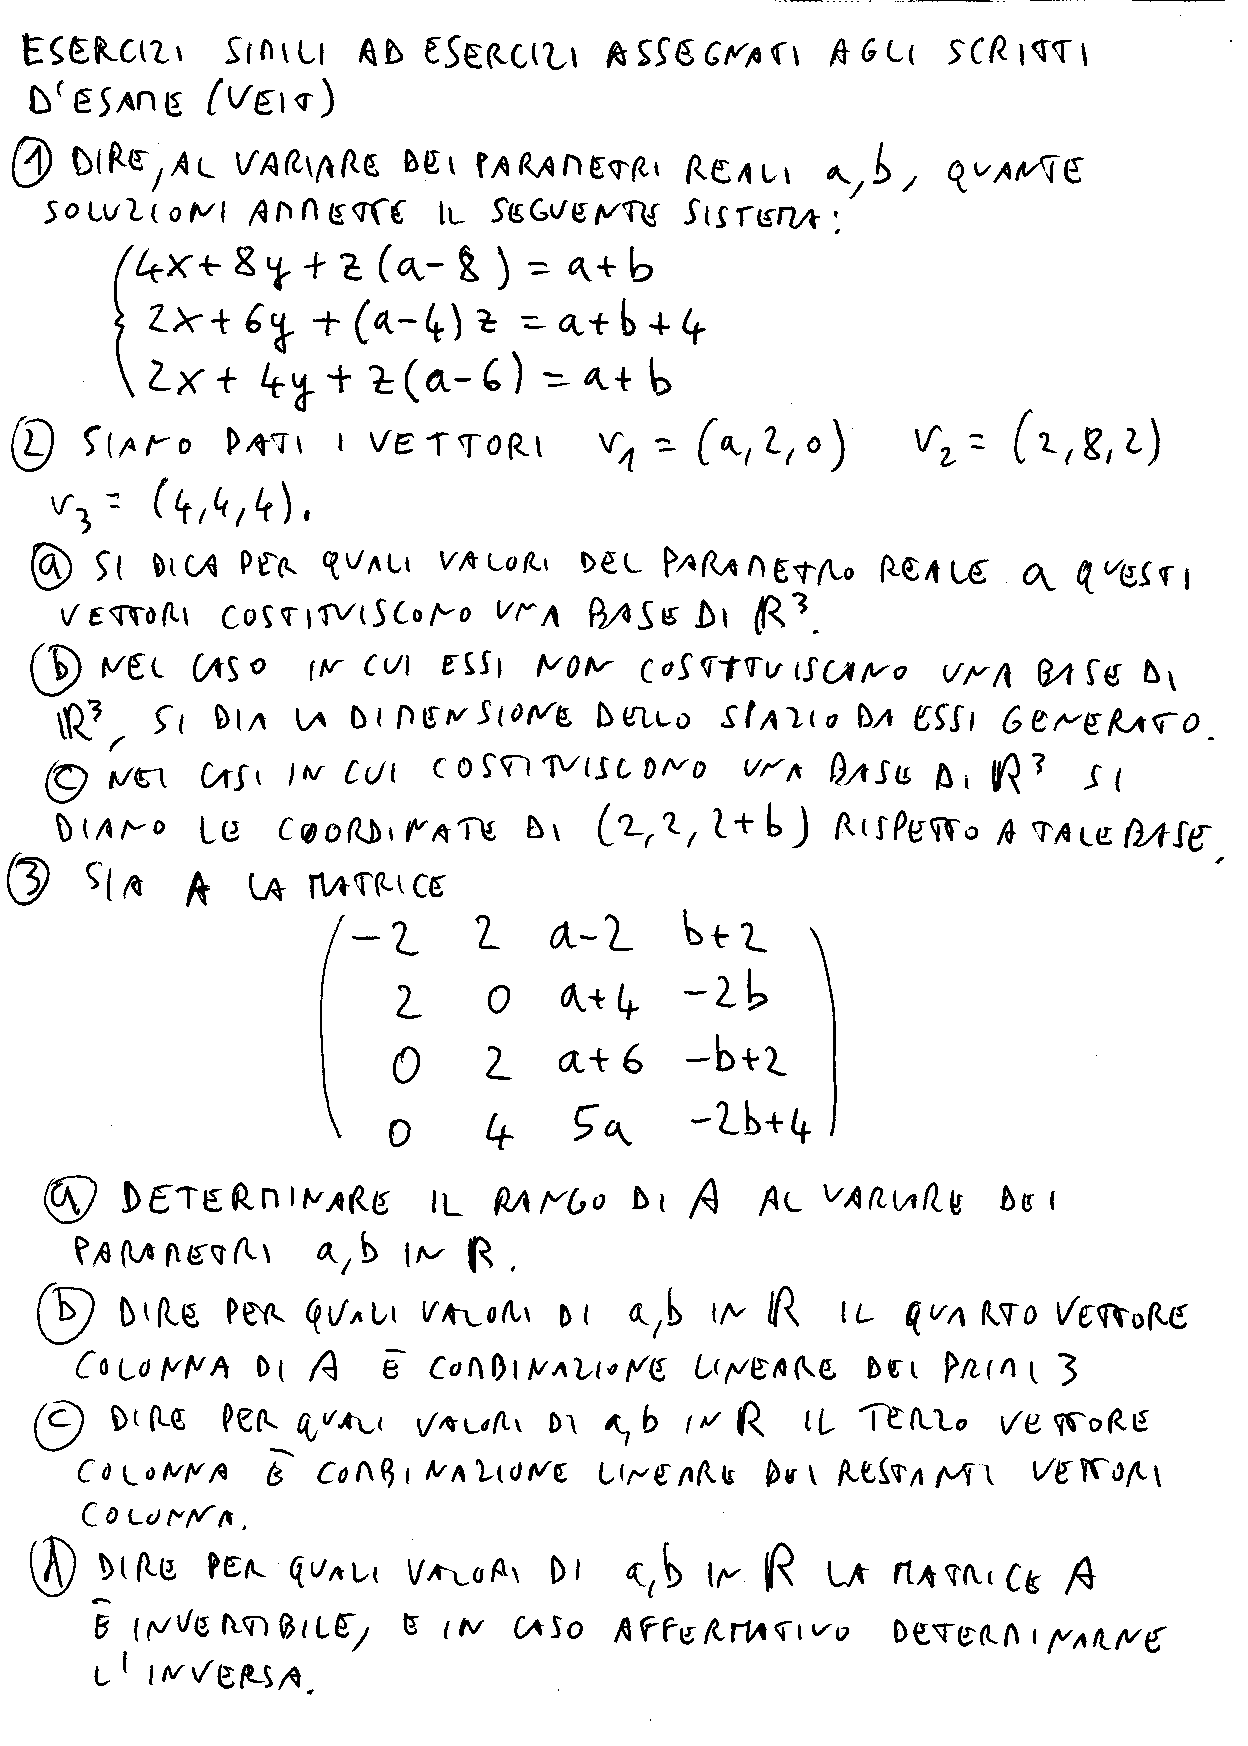 ESERCIZI SIMILI AD ESERCIZI ASSEGNATI AGLI SCRITTI
D'ESAME (VEIT)
① DIRE, AL VARIARE DEI PARAMETRI REALI a,b, QUANTE
SOLUZIONI AMMETTE IL SEGUENTE SISTEMA:
4x+8y+z(a-8)=a+b
2x+6y+(a-4)z=a+b+4
2x+4y+z(a-6)=a+b
② SIANO DATI I VETTORI v₁=(a,2,0) v₂=(2,8,2)
v₃=(4,4,4).
ⓐ SI DICA PER QUALI VALORI DEL PARAMETRO REALE a QUESTI
VETTORI COSTITUISCONO UNA BASE DI ℝ³.
ⓑ NEL CASO IN CUI ESSI NON COSTITUISCANO UNA BASE DI
ℝ³, SI DIA LA DIMENSIONE DELLO SPAZIO DA ESSI GENERATO.
ⓒ NEI CASI IN CUI COSTITUISCONO UNA BASE DI ℝ³ SI
DIANO LE COORDINATE DI (2,2,2+b) RISPETTO A TALE BASE.
③ SIA A LA MATRICE
-2 2 a-2 b+2
2 0 a+4 -2b
0 2 a+6 -b+2
0 4 5a -2b+4
ⓐ DETERMINARE IL RANGO DI A AL VARIARE DEI
PARAMETRI a,b IN ℝ.
ⓑ DIRE PER QUALI VALORI DI a,b IN ℝ IL QUARTO VETTORE
COLONNA DI A È COMBINAZIONE LINEARE DEI PRIMI 3
ⓒ DIRE PER QUALI VALORI DI a,b IN ℝ IL TERZO VETTORE
COLONNA È COMBINAZIONE LINEARE DEI RESTANTI VETTORI
COLONNA.
ⓓ DIRE PER QUALI VALORI DI a,b IN ℝ LA MATRICE A
È INVERTIBILE, E IN CASO AFFERMATIVO DETERMINARNE
L'INVERSA.